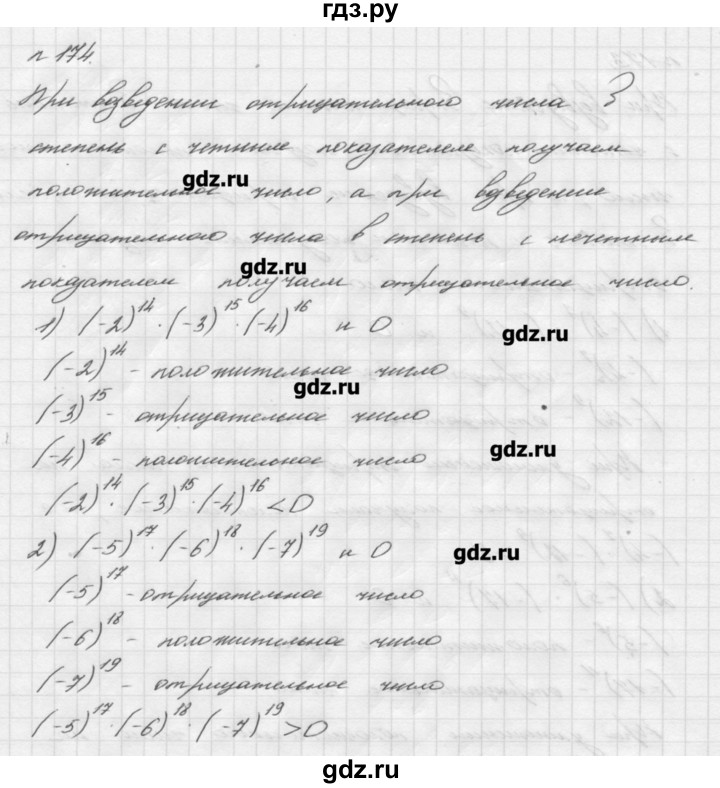 гдз.ру
n 174.
При возведении отрицательного числа в
степень с четным показателем получаем
gdz.ru
положительное число, а при возведении
отрицательного числа в степень с нечетным
gdz.ru
показателем получаем отрицательное число.
1) (-2)¹⁴ · (-3)¹⁵ · (-4)¹⁶ и 0
gdz.ru
(-2)¹⁴ - положительное число
gdz.ru
(-3)¹⁵ - отрицательное число
(-4)¹⁶ - положительное число
gdz.ru
(-2)¹⁴ · (-3)¹⁵ · (-4)¹⁶ < 0
2) (-5)¹⁷ · (-6)¹⁸ · (-7)¹⁹ и 0
gdz.ru
(-5)¹⁷ - отрицательное число
(-6)¹⁸ - положительное число
(-7)¹⁹ - отрицательное число
(-5)¹⁷ · (-6)¹⁸ · (-7)¹⁹ > 0
gdz.ru